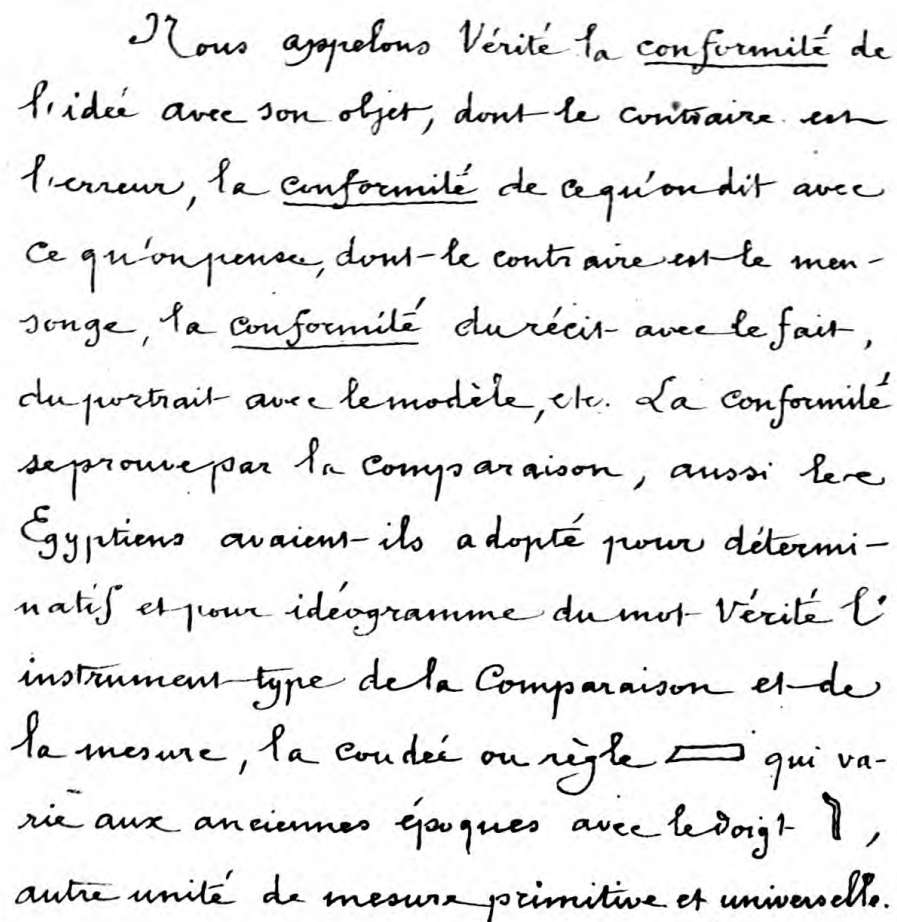 Nous appelons Vérité la conformité de
l'idée avec son objet, dont le contraire est
l'erreur, la conformité de ce qu'on dit avec
ce qu'on pense, dont le contraire est le men-
songe, la conformité du récit avec le fait,
du portrait avec le modèle, etc. La conformité
se prouve par la comparaison, aussi les
Egyptiens avaient-ils adopté pour détermi-
natif et pour idéogramme du mot Vérité l'
instrument type de la Comparaison et de
la mesure, la coudée ou règle qui va-
rie aux anciennes époques avec le doigt ,
autre unité de mesure primitive et universelle.